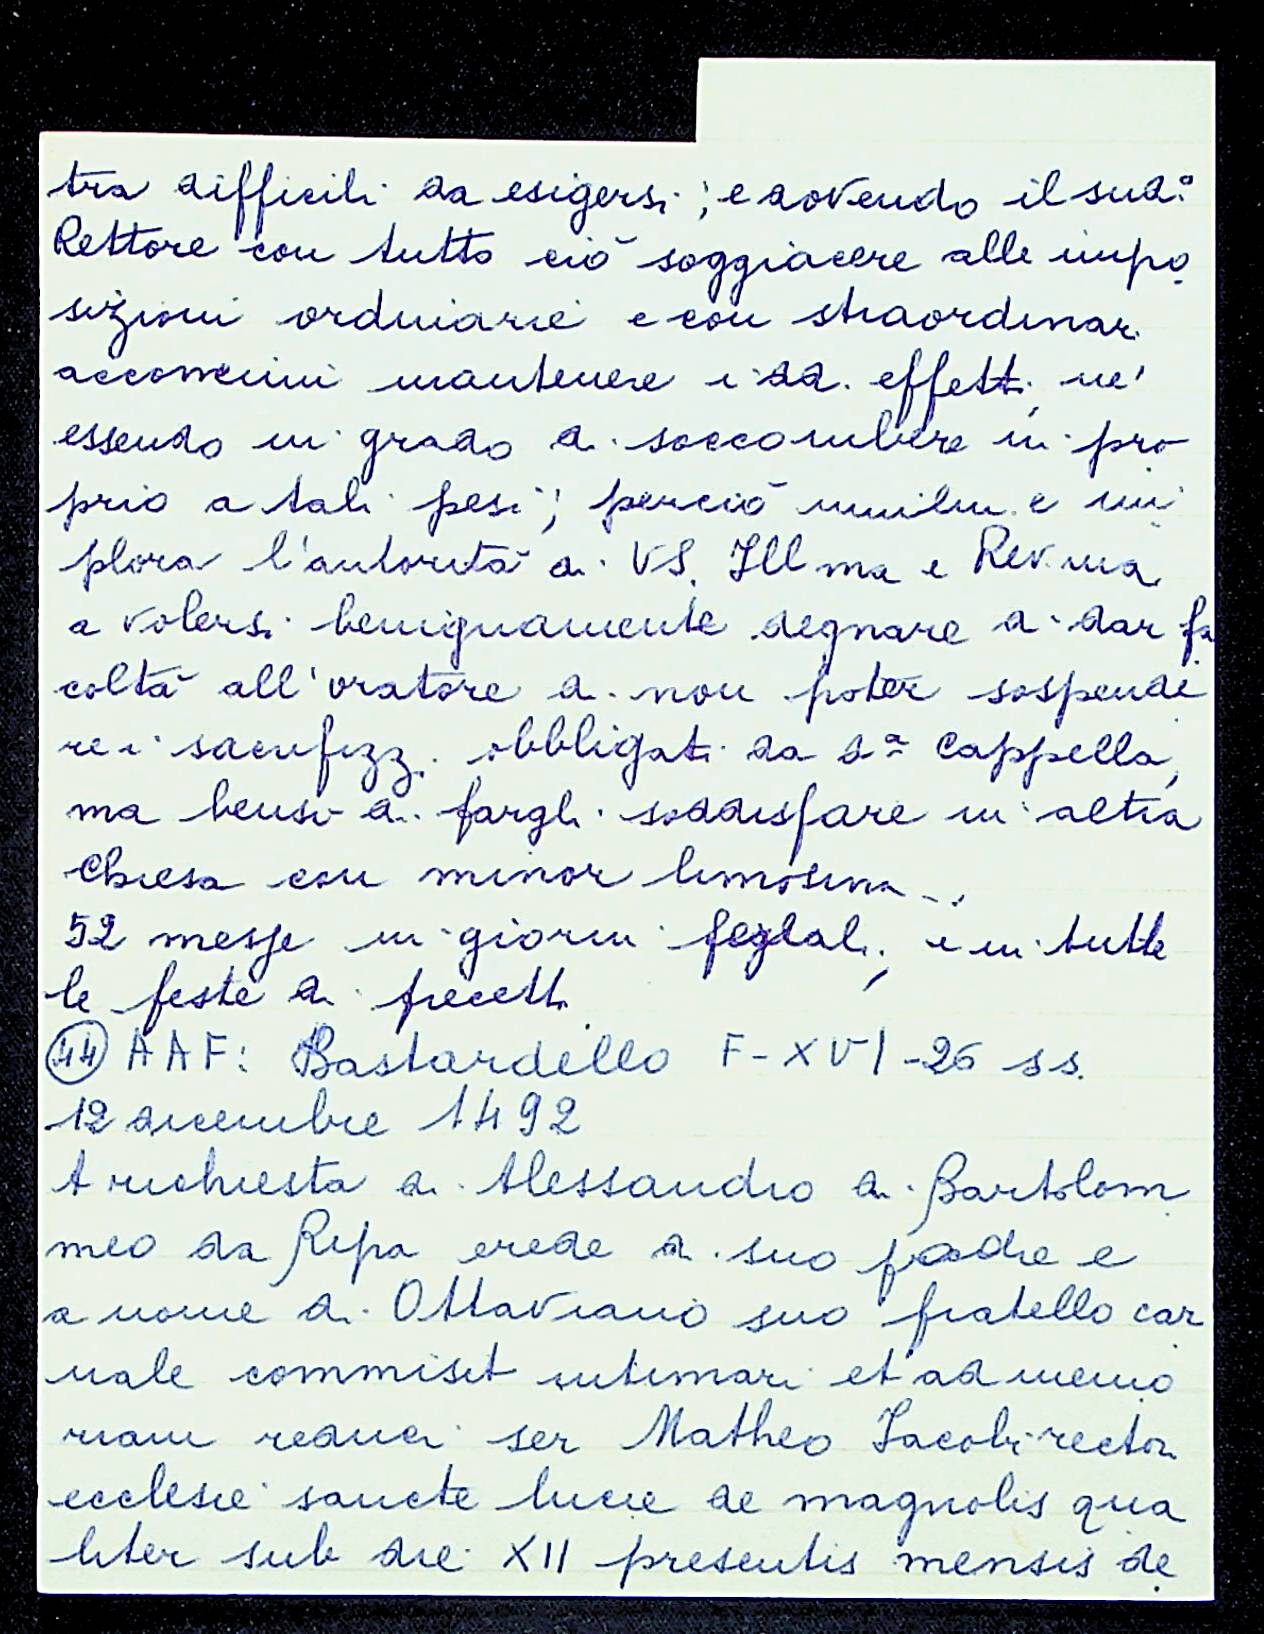 tra difficili da esigersi; e dovendo il sud.º
Rettore con tutto ciò soggiacere alle impo
sizioni ordinarie e con straordinari
acconcimi mantenere i dd. effetti, ne'
essendo in grado di soccombere in pro
prio a tali pesi; perciò umilm.e im
plora l'autorità di VS. Ill ma e Rev.ma
a volersi benignamente degnare di dar fa
coltà all'oratore di non poter sospende
re i sacrifizzi obbligati da d.ª Cappella,
ma bensì di fargli soddisfare in altra
Chiesa con minor limosina..
52 messe in giorni feriali, e in tutte
le feste di precetti.
44 AAF: Bastardello F-XVI-26 ss.
12 dicembre 1492
A richiesta di Alessandro di Bartolom
meo da Ripa erede di suo padre e
a nome di Ottaviano suo fratello car
nale commisit intimari et ad memo
riam reduci ser Matheo Jacobi rectori
ecclesie sancte lucie de magnolis qua
liter sub die XII presentis mensis de